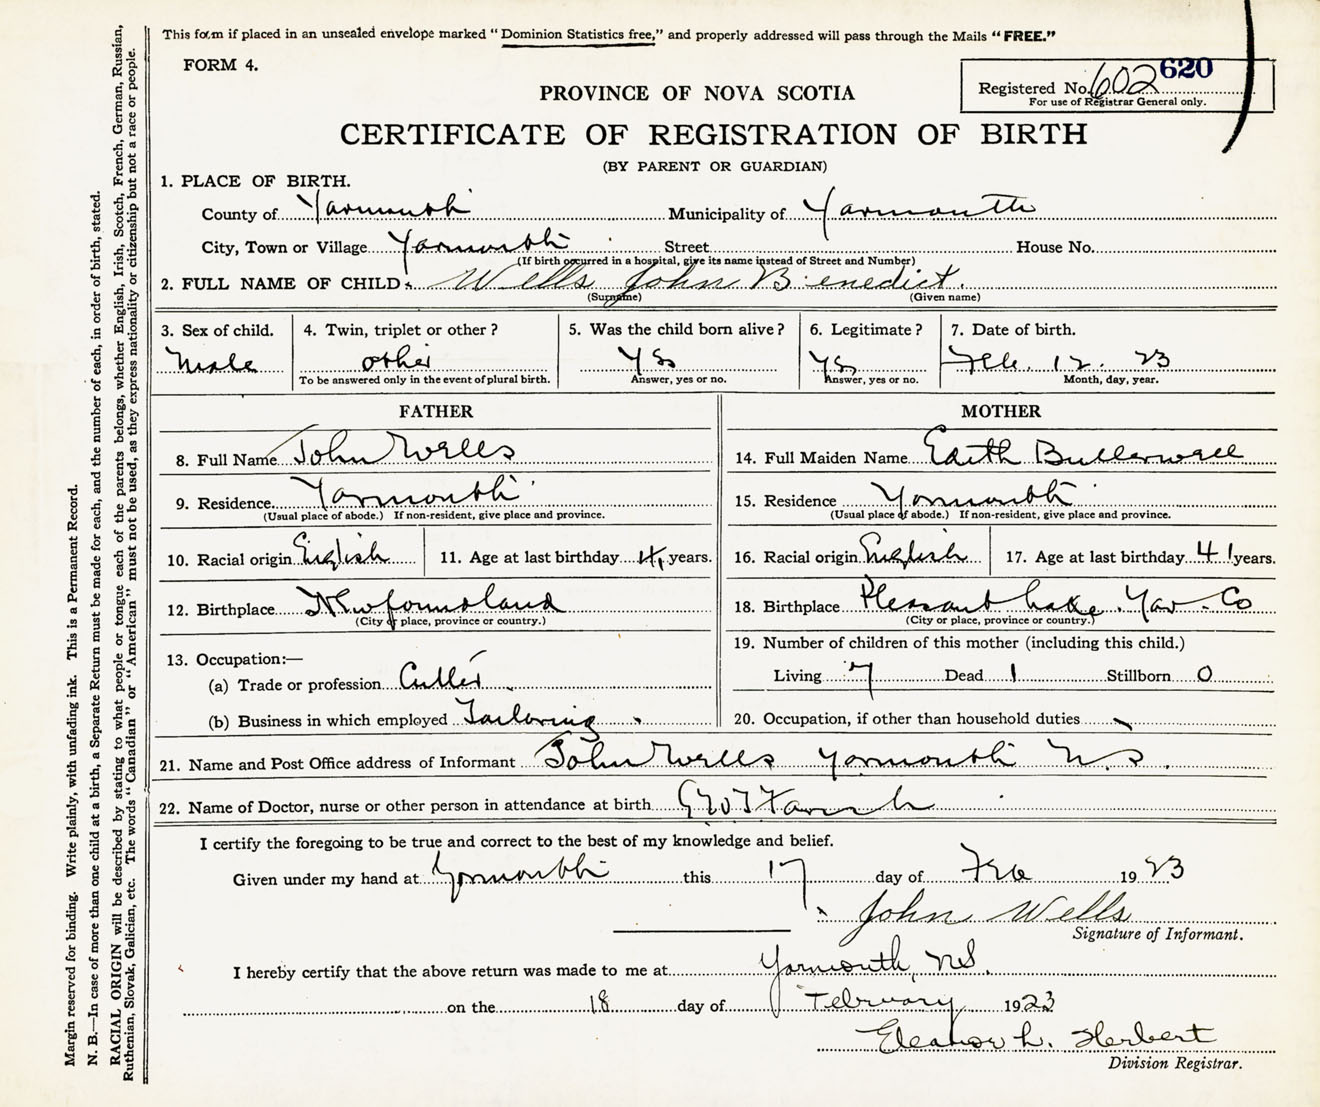 This form if placed in an unsealed envelope marked "Dominion Statistics free," and properly addressed will pass through the Mails "FREE."
FORM 4.
Registered No. 602 620
For use of Registrar General only.
PROVINCE OF NOVA SCOTIA
CERTIFICATE OF REGISTRATION OF BIRTH
(BY PARENT OR GUARDIAN)
1. PLACE OF BIRTH.
County of Yarmouth Municipality of Yarmouth
City, Town or Village Yarmouth Street House No.
(If birth occurred in a hospital, give its name instead of Street and Number)
2. FULL NAME OF CHILD Wells John Benedict.
(Surname) (Given name)
3. Sex of child. 4. Twin, triplet or other? 5. Was the child born alive? 6. Legitimate? 7. Date of birth.
Male other Yes Yes Feb. 12. 23
To be answered only in the event of plural birth. Answer, yes or no. Answer, yes or no. Month, day, year.
FATHER
8. Full Name John Wells
9. Residence Yarmouth
(Usual place of abode.) If non-resident, give place and province.
10. Racial origin English 11. Age at last birthday years.
12. Birthplace Newfoundland
(City or place, province or country.)
13. Occupation:—
(a) Trade or profession Cutter
(b) Business in which employed Tailoring
MOTHER
14. Full Maiden Name Edith Bullerwell
15. Residence Yarmouth
(Usual place of abode.) If non-resident, give place and province.
16. Racial origin English 17. Age at last birthday 41 years.
18. Birthplace Pleasant Lake. Yar. Co
(City or place, province or country.)
19. Number of children of this mother (including this child.)
Living 7 Dead 1 Stillborn 0
20. Occupation, if other than household duties
21. Name and Post Office address of Informant John Wells Yarmouth N.S.
22. Name of Doctor, nurse or other person in attendance at birth Farish
I certify the foregoing to be true and correct to the best of my knowledge and belief.
Given under my hand at Yarmouth this 17 day of Feb 1923
John Wells
Signature of Informant.
I hereby certify that the above return was made to me at Yarmouth, N.S.
on the 18 day of February 1923
Eleanor L. Herbert
Division Registrar.
Margin reserved for binding. Write plainly, with unfading ink. This is a Permanent Record.
N. B.—In case of more than one child at a birth, a Separate Return must be made for each, and the number of each, in order of birth, stated.
RACIAL ORIGIN will be described by stating to what people or tongue each of the parents belongs, whether English, Irish, Scotch, French, German, Russian,
Ruthenian, Slovak, Galician, etc. The words "Canadian" or "American" must not be used, as they express nationality or citizenship but not a race or people.